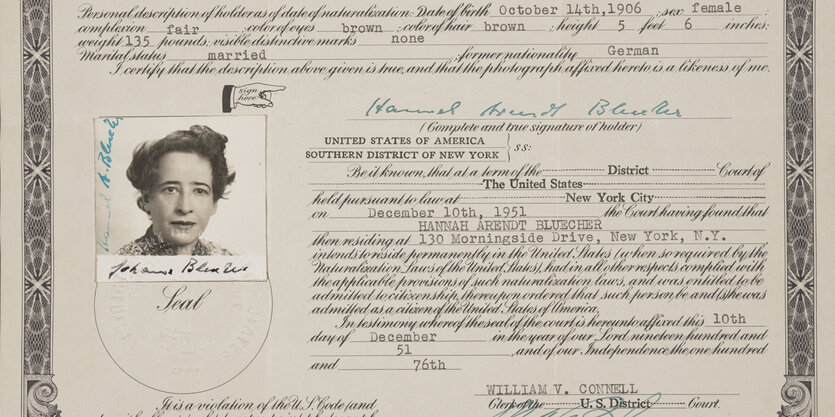 Personal description of holder as of date of naturalization: Date of birth October 14th, 1906 sex female
complexion fair color of eyes brown color of hair brown height 5 feet 6 inches:
weight 135 pounds: visible distinctive marks none
Marital status married former nationality German
I certify that the description above given is true, and that the photograph affixed hereto is a likeness of me.
sign here
Hannah Arendt Bluecher
(Complete and true signature of holder)
UNITED STATES OF AMERICA
SOUTHERN DISTRICT OF NEW YORK
ss:
Be it known, that at a term of the District Court of
The United States
held pursuant to law at New York City
on December 10th, 1951 the Court having found that
HANNAH ARENDT BLUECHER
then residing at 130 Morningside Drive, New York, N.Y.
intends to reside permanently in the United States (when so required by the
Naturalization Laws of the United States), had in all other respects complied with
the applicable provisions of such naturalization laws, and was entitled to be
admitted to citizenship, thereupon ordered that such person be and (s)he was
admitted as a citizen of the United States of America.
In testimony whereof the seal of the court is hereunto affixed this 10th
day of December in the year of our Lord nineteen hundred and
51 and of our Independence the one hundred
and 76th
WILLIAM V. CONNELL
Clerk of the U. S. District Court.
Hannah A. Bluecher
Johanna Bluecher
Seal
It is a violation of the U.S. Code (and